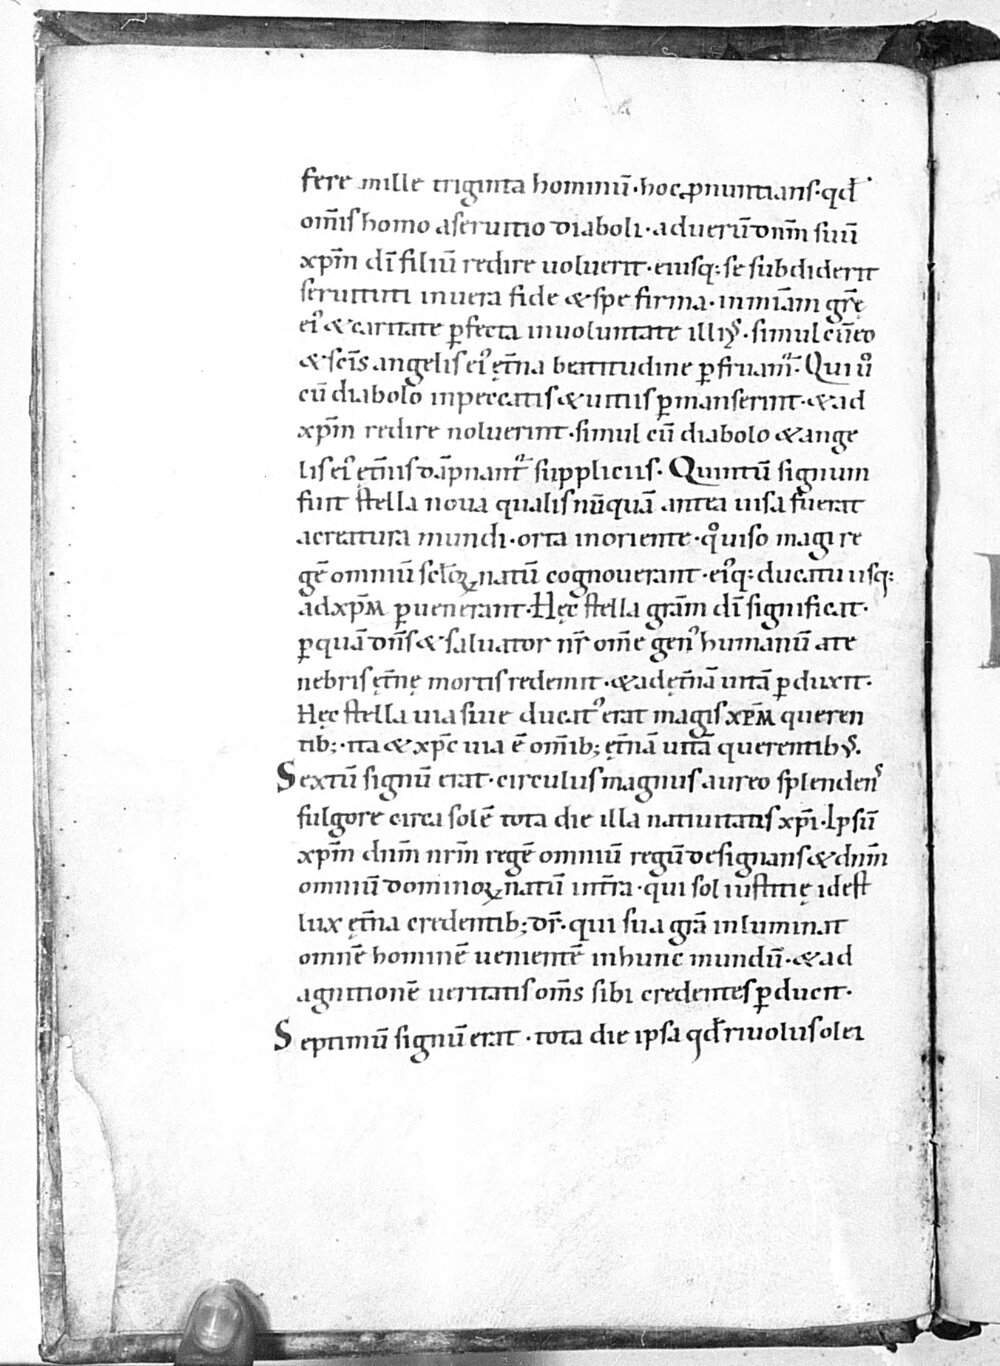 fere mille triginta hominū · hoc ꝓnuntians · qđ
om̄is homo a seruitio diaboli · ad uerū dn̄m suū
xp̄m dī filiū redire uoluerit · eiusq; se subdiderit
seruituti in uera fide & spe firma · in mīam grę̄
ei᾽ & caritate ꝑfecta in uoluntate illi᾽ · simul cū eo
& sc̄is angelis ei᾽ ęt̄na beatitudine ꝑfruam̄ · Qui ů
cū diabolo in peccatis & uitiis ꝑmanserint · & ad
xp̄m redire noluerint · simul cū diabolo & ange
lis ei᾽ ęt̄nis dāpnant᾽ suppliciis · Quintū signum
fuit stella noua qualis nūquā antea uisa fuerat
a creatura mundi · orta in oriente · q̊ uiso magi re
gē omniū sc̄loꝝ natū cognouerant · ei᾽q; ducatu usq;
ad xp̄m ꝑuenerant · Hęc stella grām dī significat ·
ꝑ quā dn̄s & saluator nr̄ om̄e gen᾽ humanū a te
nebris ęt̄nę mortis redemit · & ad ęt̄nā uitā ꝑduxit ·
Hęc stella uia siue ducat᾽ erat magis xp̄m queren
tib; · ita & xp̄c uia ē om̄ib; ęt̄nā uitā querentib᾽ .
Sextū signū erat · circulus magnus aureo splendens
fulgore circa solē tota die illa natiuitatis xp̄i · Ipsū
xp̄m dn̄m nr̄m regē omniū regū designans & dn̄m
omniū dominoꝝ natū int̄ra · qui sol iustitię idest
lux ęt̄na credentib; dr̄ · qui sua grā inluminat
omnē hominē uenientē in hunc mundū · & ad
agnitionē ueritatis om̄s sibi credentes ꝑducit ·
Septimū signū erat · tota die ipsa qđ riuolus olei